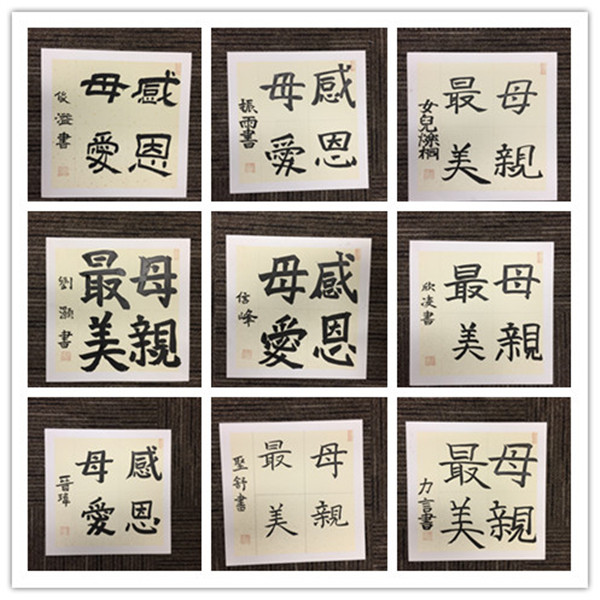 感恩
母愛
俊溢書
感恩
母愛
振雨書
母親
最美
女兒濼桐
母親
最美
劉灝書
感恩
母愛
信峰
母親
最美
欣凌書
感恩
母愛
晉瑋
母親
最美
聖舒書
母親
最美
力言書